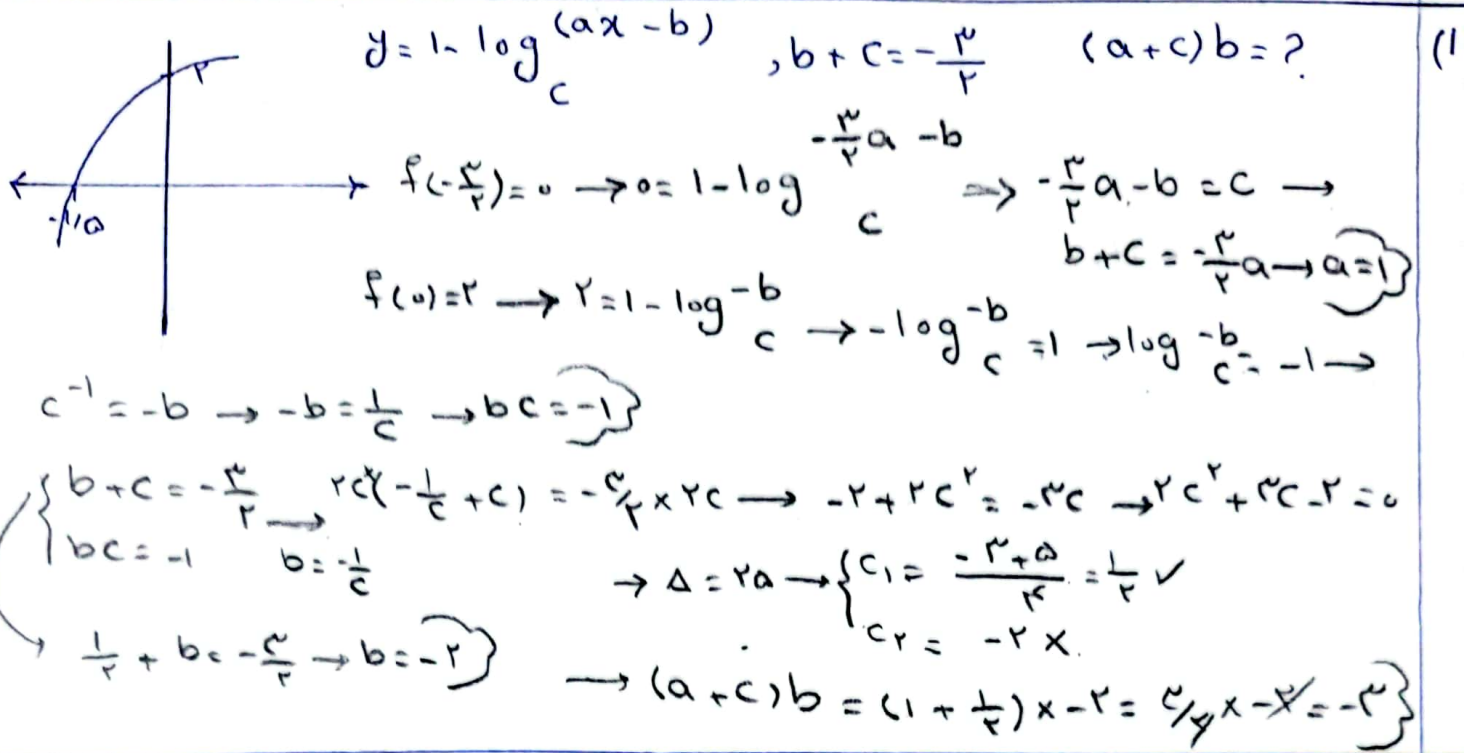 (۱ y = 1 - log_c^(ax - b) , b + c = -۳/۲ (a + c) b = ?
۲
-۱/۵
f(-۳/۲) = ۰ → ۰ = ۱ - log_c^(-۳/۲ a - b) ⇒ -۳/۲ a - b = c →
b + c = -۳/۲ a → a = ۱
f(۰) = ۲ → ۲ = ۱ - log_c^(-b) → -log_c^(-b) = ۱ → log_c^(-b) = -۱ →
c^-۱ = -b → -b = ۱/c → bc = -۱
{ b + c = -۳/۲ → ۲c × (-۱/c + c) = -۳/۲ × ۲c → -۲ + ۲c^۲ = -۳c → ۲c^۲ + ۳c - ۲ = ۰
bc = -۱ b = -۱/c → Δ = ۲۵ → { c۱ = (-۳ + ۵)/۴ = ۱/۲ ✓
c۲ = -۲ ×
۱/۲ + b = -۳/۲ → b = -۲ → (a + c) b = (۱ + ۱/۲) × -۲ = ۳/۲ × -۲ = -۳